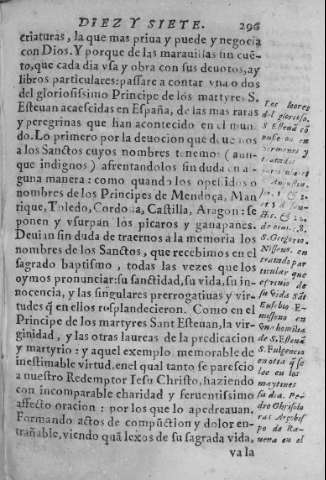 DIEZ Y SIETE. 296
criaturas, la que mas priua y puede y negocia
con Dios. Y porque de las marauillas sin cuē-
to, que cada dia vsa y obra con sus deuotos, ay
libros particulares: passare a contar vna o dos
del gloriosissimo Principe de los martyres S.
Esteuan acaescidas en España, de las mas raras
y peregrinas que han acontecido en el mun-
do. Lo primero por la deuocion que deuemos
a los Sanctos cuyos nombres tenemos (aun-
que indignos) afrentandolos sin duda en a-
guna manera: como quando los apellidos o
nombres de los Principes de Mendoça, Man-
rique, Toledo, Cordoua, Castilla, Aragon: se
ponen y vsurpan los picaros y ganapanes.
Deuian sin duda de traernos a la memoria los
nombres de los Sanctos, que recebimos en el
sagrado baptismo, todas las vezes que los
oymos pronunciar: su sanctidad, su vida, su in-
nocencia, y las singulares prerrogatiuas y vir-
tudes q̄ en ellos resplandecieron. Como en el
Principe de los martyres Sant Esteuan, la vir-
ginidad, y las otras laureas de la predicacion
y martyrio: y aquel exemplo memorable de
inestimable virtud, en el qual tanto se parescio
a nuestro Redemptor Iesu Christo, haziendo
con incomparable charidad y feruentissimo
affecto oracion: por los que lo apedreauan.
Formando actos de compūction y dolor en-
trañable, viendo quā lexos de su sagrada vida,
va la
Lee loores
del glorioso
S. Esteuā
sermones y
tratados
S. Gregorio
Nisseno, en
tratado par
ticular que
de
su vida San
Eusebio E-
misseno en
vna homilia
de S. Esteuā
S. Fulgencio
en otra q̄ se
lee en los
maytines de
su dia. Pe-
dro Chrisolo
Arçobis
po de Ra-
uena en el